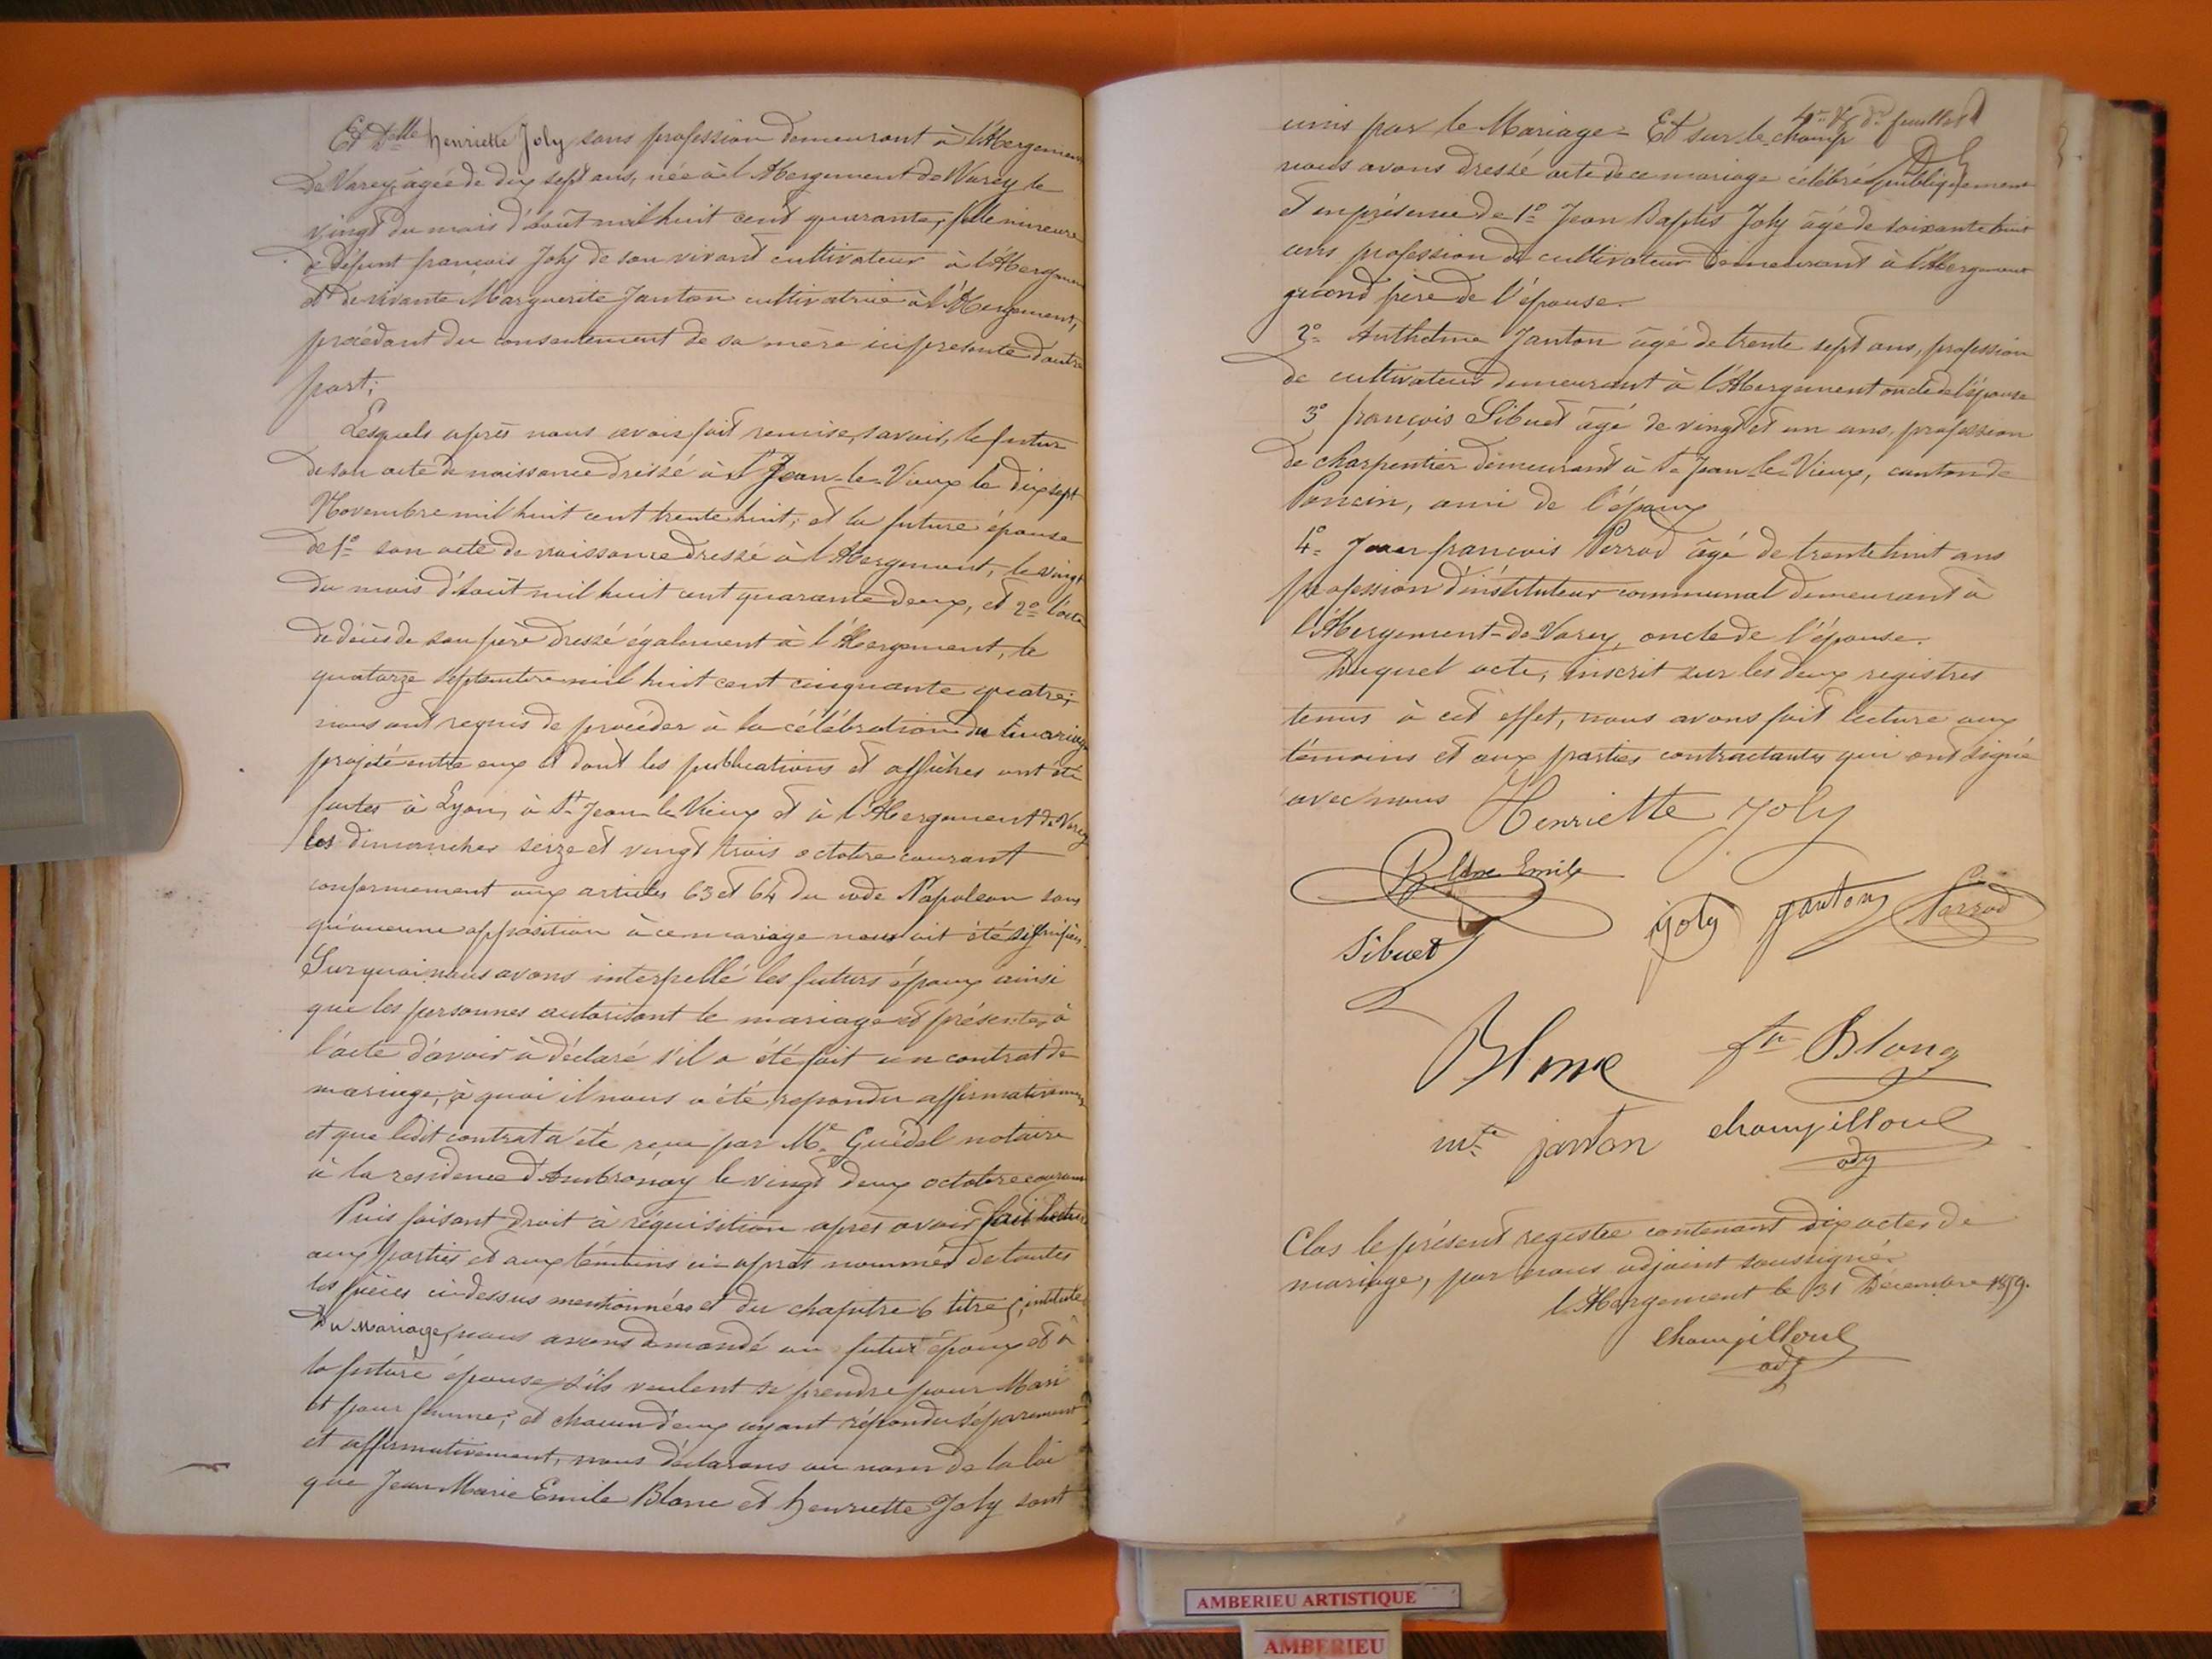 Et Delle henriette Joly sans profession demeurant à l'Abergement
de Varey, âgée de dix sept ans, née à l'Abergement de Varey le
vingt du mois d'août mil huit cent quarante, fille mineure
de défunt françois Joly de son vivant cultivateur à l'Abergement
et de vivante Marguerite Janton cultivatrice à l'Abergement,
procédant du consentement de sa mère ici présente d'autre
part;
Lesquels après nous avoir fait remise, savoir, le futur
de son acte de naissance dressé à St Jean-le-Vieux le dix sept
Novembre mil huit cent trente huit; et la future épouse
de 1o son acte de naissance dressé à l'Abergement, le vingt
du mois d'août mil huit cent quarante deux, et 2o l'acte
de décès de son père dressé également à l'Abergement, le
quatorze septembre mil huit cent cinquante quatre;
nous ont requis de procéder à la célébration du mariage
projeté entre eux et dont les publications et affiches ont été
faites à Lyon, à St Jean-le-Vieux et à l'Abergement de Varey
les dimanches seize et vingt trois octobre courant
conformement aux articles 63 et 64 du code Napoleon sans
qu'aucune opposition à ce mariage nous ait été signifiée.
Sur quoi nous avons interpellé les futurs époux ainsi
que les personnes autorisant le mariage et présentes à
l'acte d'avoir à déclaré s'il a été fait un contrat de
mariage, à quoi il nous a été repondu affirmativement
et que ledit contrat a été reçu par Me Guédel notaire
à la residence d'Ambronay le vingt deux octobre courant
Puis faisant droit à réquisition après avoir fait lecture
aux parties et aux témoins ci-après nommés de toutes
les pièces ci-dessus mentionnées et du chapitre 6 titre 5, intitulé
Du Mariage, nous avons demandé au futur époux et à
la future épouse s'ils veulent se prendre pour Mari
et pour femme; et chacun d'eux ayant répondu séparement
et affirmativement, nous déclarons au nom de la loi
que Jean Marie Emile Blanc et henriette Joly sont
4me & dr feuillet
unis par le Mariage - Et sur le champ
nous avons dressé acte de ce mariage célébré publiquement
et en présence de 1o Jean Baptis Joly âgé de soixante huit
ans profession de cultivateur demeurant à l'Abergement
grand père de l'épouse.
2o Anthelme Janton âgé de trente sept ans, profession
de cultivateur demeurant à l'Abergement oncle de l'épouse
3o françois Sibuet âgé de vingt et un ans, profession
de charpentier demeurant à St Jean-le-Vieux, canton de
Poncin, ami de l'époux
4o Jean françois Perrod âgé de trente huit ans
profession d'instituteur communal demeurant à
l'Abergement-de-Varey, oncle de l'épouse.
Duquel acte, inscrit sur les deux registres
tenus à cet effet, nous avons fait lecture aux
témoins et aux parties contractantes qui ont signé
avec nous Henriette Joly
Blanc Emile
joly janton Perrod
Sibuet
Blanc fse Blanc
mte janton
adj
Clos le présent registre contenant dix actes de
mariage, par nous adjoint soussigné.
l'Abergement le 31 Décembre 1859.
adj
AMBERIEU ARTISTIQUE
AMBERIEU